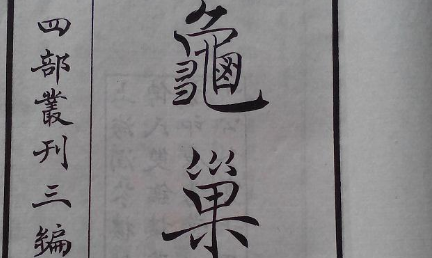 龜巢
四部叢刊三編